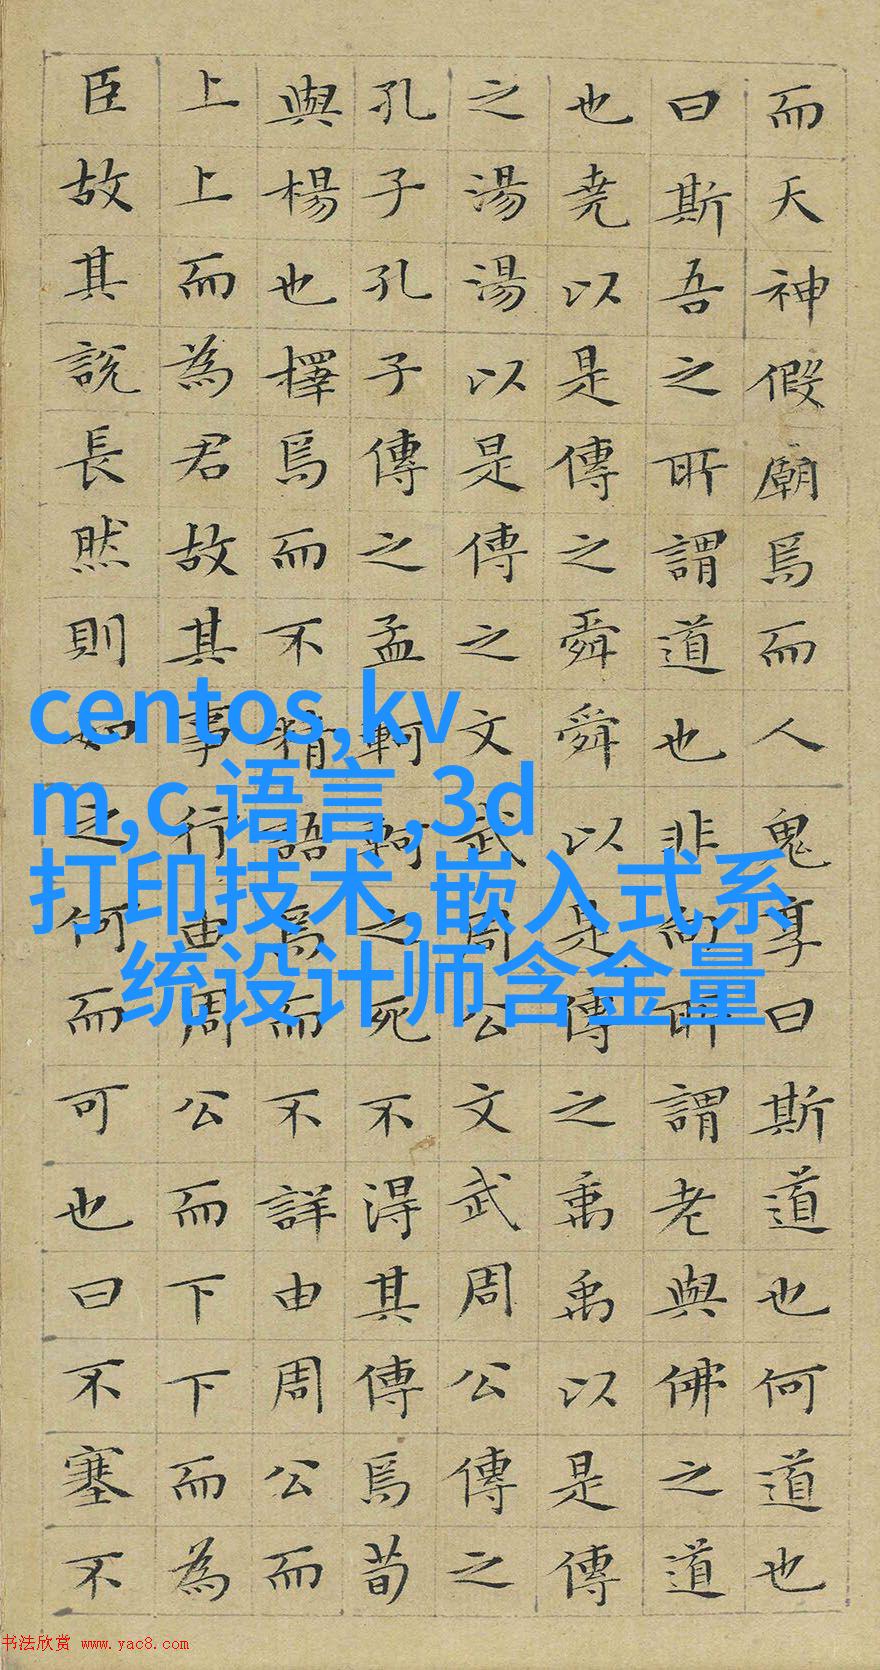 而天神假廟焉而人鬼享曰斯道也何道也
曰斯吾之所謂道也非向所謂老與佛之道
也堯以是傳之舜舜以是傳之禹禹以是傳
之湯湯以是傳之文武周公文武周公傳之
孔子孔子傳之孟軻軻之死不得其傳焉荀
與楊也擇焉而不精語焉而不詳由周公而
上上而為君故其事行由周公而下下而為
臣故其說長然則如之何而可也曰不塞不
centos,kv
m,c 语言,3d
打印技术,嵌入式系
统设计师含金量
书法欣赏 www.yac8.com